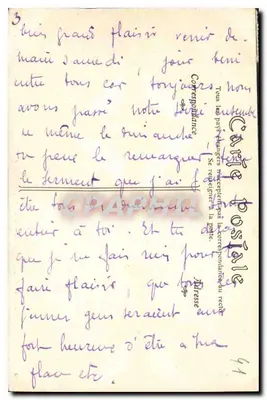 3
bien grand plaisir venir de-
main samedi, jour béni
entre tous car toujours nous
avons passé notre soirée ensemble
ou même le dimanche
on peut le remarquer,
le serment que j'ai fait
être tous les
à toi. Et tu dis
que je ne fais rien pour te
faire plaisir, que
jeunes gens seraient
fort heureux d'être à ma
place etc.
41
Carte Postale
Tous les pays étrangers n'acceptent pas la correspondance au recto
Se renseigner à la poste
Correspondance
Adresse